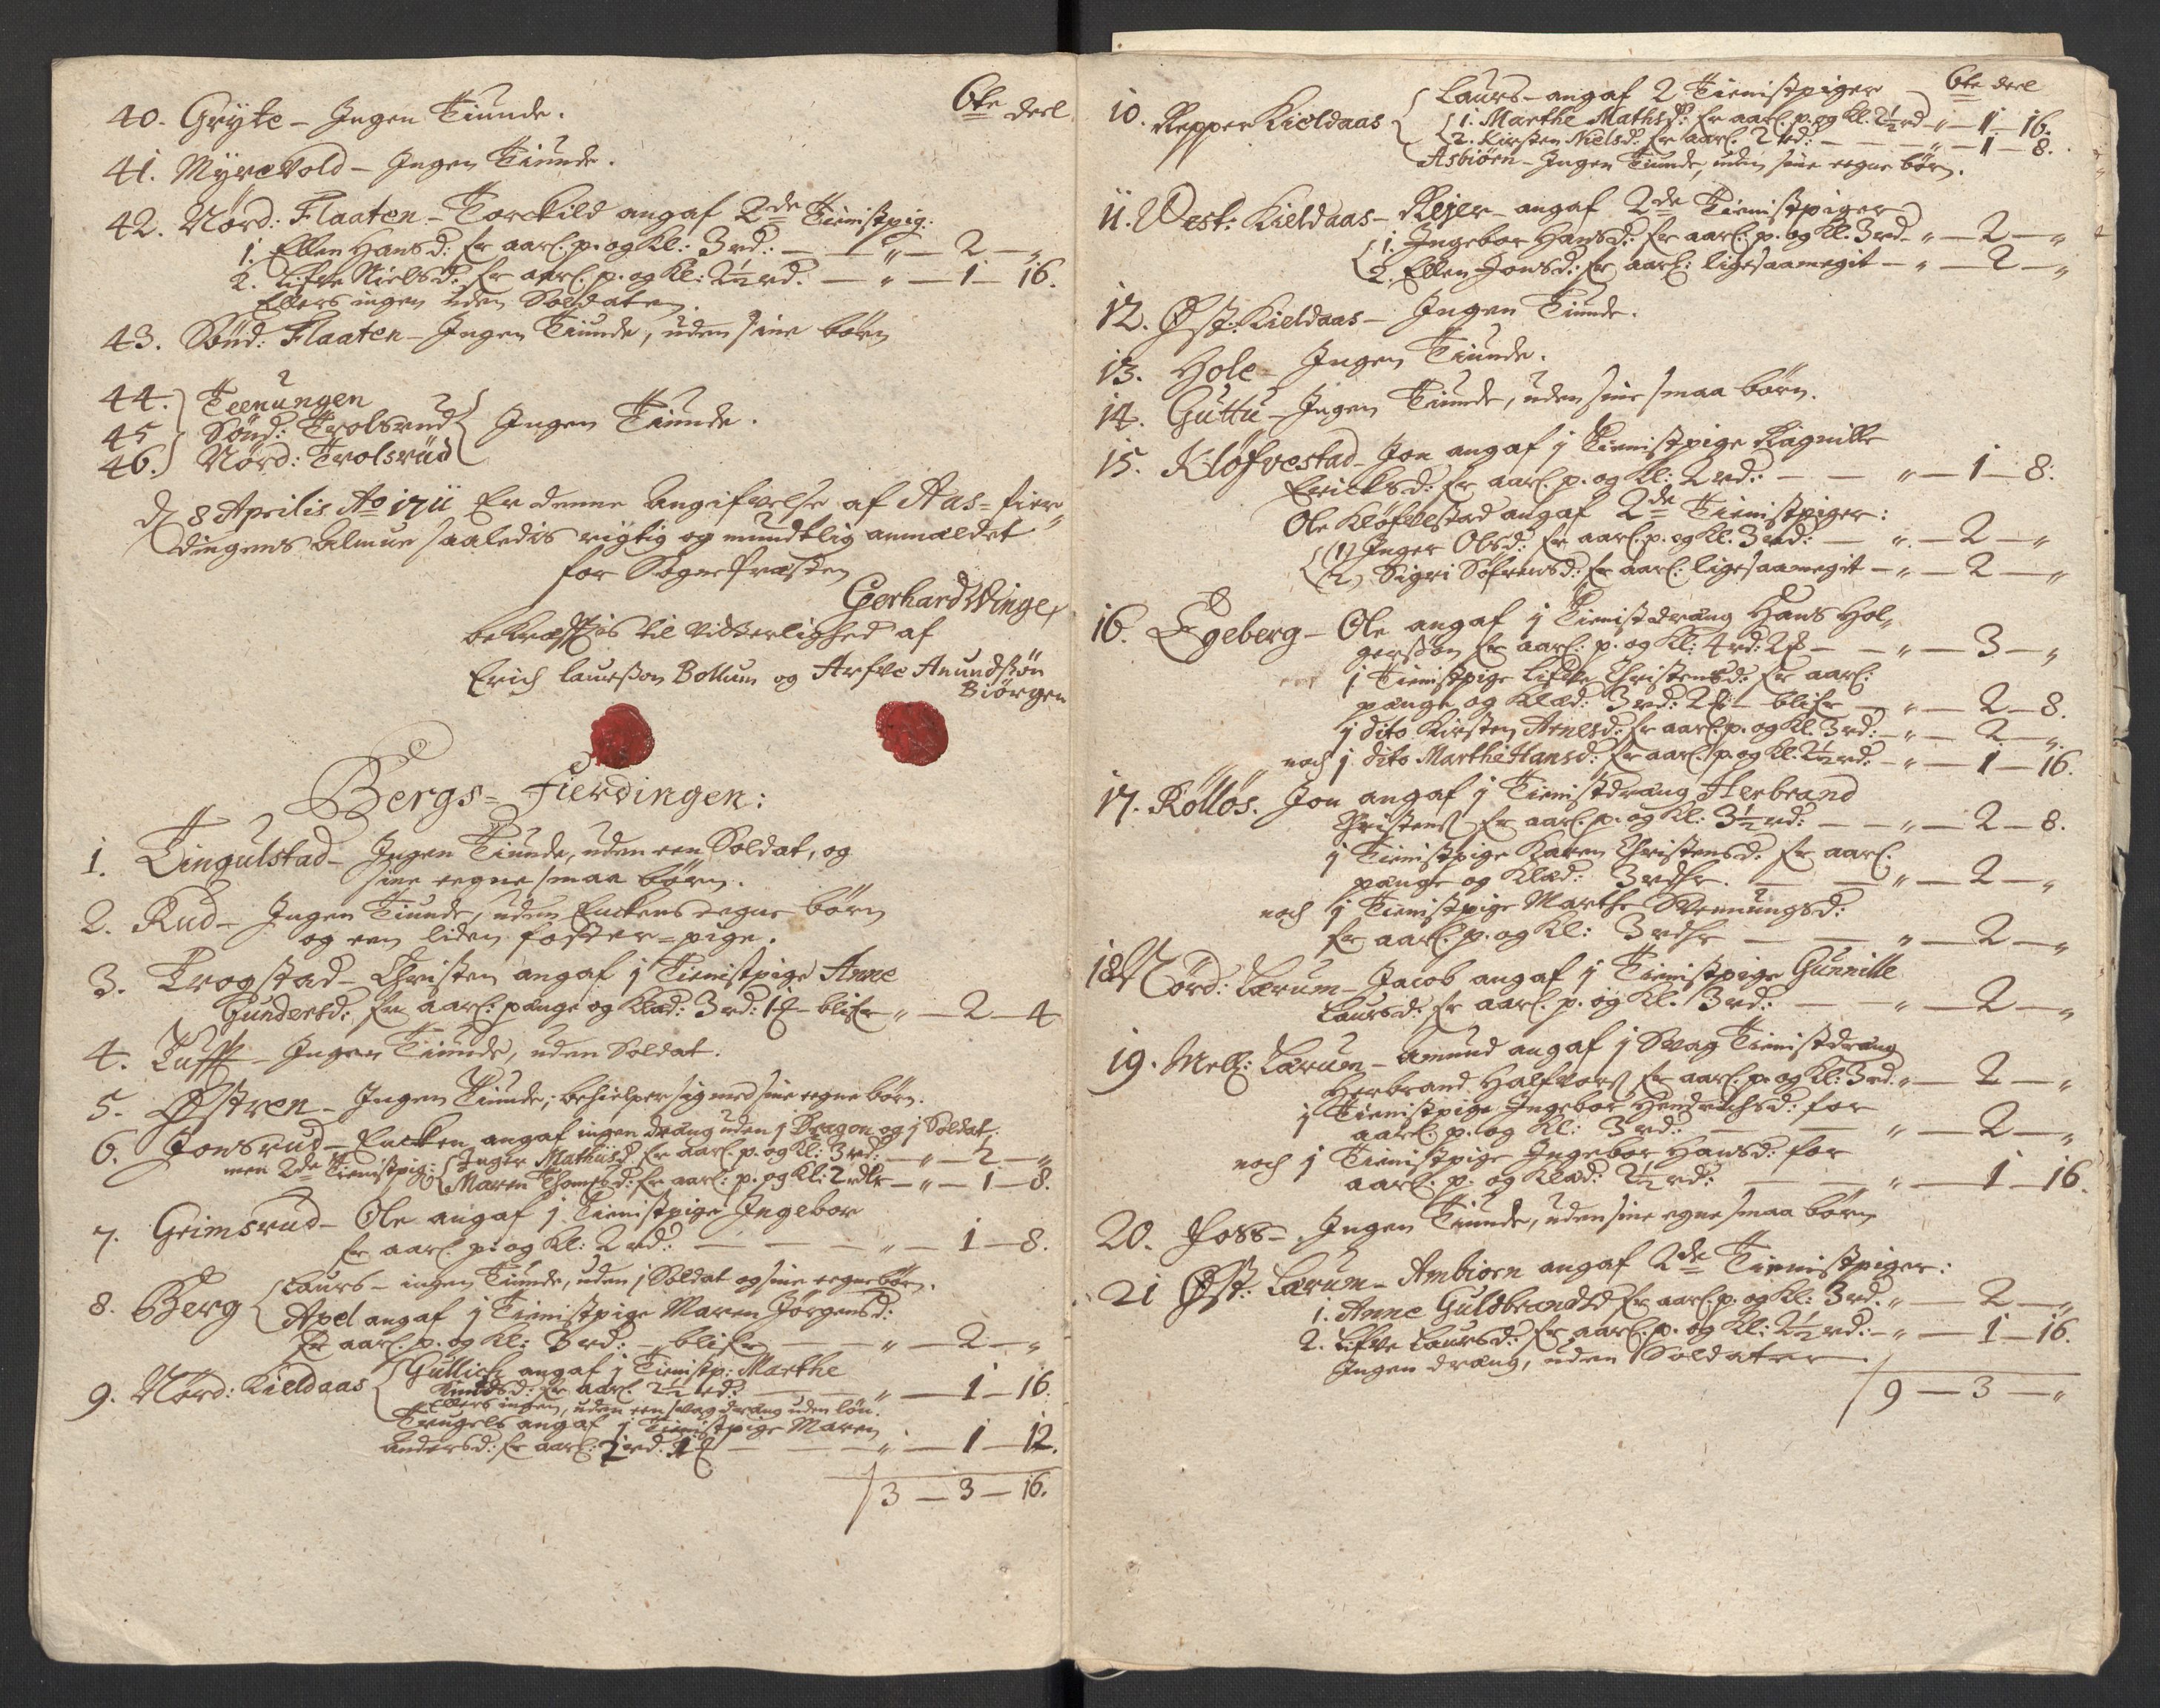 6te deel
40. Gryte – Ingen Tiunde.
41. Myrevold – Ingen Tiunde.
42. Nord: Flaaten – Torckild angaf 2de Tienistpig:
1. Ellen Hansd: for aarl: p. og Kl: 3 rd: — „ — 2 — „
2. Lifve Nielsd: for aarl: p. og Kl: 2½ rd: — „ — 1 — 16.
Ellers ingen uden Soldaten.
43. Sönd: Flaaten – Ingen Tiunde, uden sine börn
44. Teenungen
45 Sönd: Trolsrud } Ingen Tiunde.
46. Nord: Trolsrud
d 8 Aprilis Ao 1711 Er denne Angifvelse af Aas-fier-
dingens Almue saaledis rigtig og mundtlig anmældet
for Sognepræsten
Gerhard Winge
bekræftis til vitterlighed af
Erich Laurssön Bollum og Arfve Amundssön
Biörgen
Bergs-Fierdingen:
1. Tingulstad – Ingen Tiunde, uden een Soldat, og
sine eegne smaa börn.
2. Rud – Ingen Tiunde, uden Enckens eegne börn
og een liden foster-pige.
3. Trogstad – Christen angaf 1 Tienistpige Anne
Gundersd: for aarl: pænge og Klæd: 3 rd: 1 – blifr „ — 2 — 4
4. Tuff – Ingen Tiunde, uden Soldat.
5. Östren – Ingen Tiunde, behielper sig med sine eegne börn.
6. Jonsrud – Encken angaf ingen dräng uden 1 Dragon og 1 Soldat.
men 2de Tienistpig: { Inger Mathisd for aarl: p. og Kl: 3 rd: — „ — 2 — „
Maren Thomesd: for aarl: p. og Kl: 2 rdlr — „ — 1 — 8.
7. Grimsrud – Ole angaf 1 Tienistpige Ingebor
for aarl: p. og Kl: 2 rd: — „ — 1 — 8.
8. Berg { Laurs – ingen Tiunde, uden 1 Soldat og sine eegne börn.
Apel angaf 1 Tienistpige Maren Jörgensd:
for aarl: p. og Kl: 3 rd: – blifr — „ — 2 — „
9. Nord: Kieldaas { Gullich angaf 1 Tienistp: Marthe
Knudsd: for aarl: 2½ rd: — „ — 1 — 16.
Ellers ingen, uden een svag dräng uden lön.
Trugels angaf 1 Tienistpige Maren
Andersd: for aarl: 2 rd. — „ — 1 — 12.
3 — 3 — 16.
6te deel
10. Repper Kieldaas { Laurs – angaf 2 Tienistpiger
1. Marthe Mathsd: for aarl: p. og Kl. 2½ rd – „ — 1 — 16.
2. Kirsten Nielsd: for aarl: 2 rd: — „ — 1 — 8.
Asbiörn – Ingen Tiunde, uden sine eegne börn.
11. Vest: Kieldaas – Rejer – angaf 2de Tienistpiger
1. Ingebor Hansd: for aarl: p. og Kl. 3 rd – „ — 2 — „
2. Ellen Jonsd: for aarl: ligesaamegit – „ — 2 — „
12. Öst: Kieldaas – Ingen Tiunde.
13. Hole – Ingen Tiunde.
14. Guttu – Ingen Tiunde, uden sine smaa börn.
15. Klöfvestad – Jon angaf 1 Tienistpige Ragnille
Ericksd: for aarl: p. og Kl: 2 rd: — „ — 1 — 8.
Ole Klöfvestad angaf 2de Tienistpiger:
1) Inger Olsd: for aarl: p. og Kl. 3 rd: — „ — 2 — „
2) Sigri Söfrensd: for aarl: ligesaamegit – „ — 2 — „
16. Egeberg – Ole angaf 1 Tienistdräng Hans Hol-
gerssön for aarl: p. og Kl: 4 rd: 2 — „ — 3 — „
1 Tienistpige Lifve Christensd: for aarl:
pænge og Klæd: 3 rd: 2 – blifr — „ — 2 — 8.
1 dito Kirsten Arnesd: for aarl: p. og Kl. 3 rd: – „ — 2 — „
noch 1 dito Marthe Hansd: for aarl: p. og Kl. 2½ rd: – „ — 1 — 16.
17. Röllös. Jon angaf 1 Tienistdräng Herbrand
Christens for aarl: p. og Kl: 3½ rd: — „ — 2 — 8.
1 Tienistpige Karen Christensd: for aarl.
pænge og Klæd: 3 rdlr. — „ — 2 — „
noch 1 Tienistpige Marthe Hemmingsd:
for aarl: p. og Kl: 3 rdlr — „ — 2 — „
18. Nord: Lærum – Jacob angaf 1 Tienistpige Gunnille
Laursd: for aarl: p. og Kl. 3 rd: — „ — 2 — „
19. Mell: Lærum – Amund angaf 1 Svag Tienistdräng
Herbrand Halfvors for aarl: p. og Kl: 3 rd. „ — 2 — „
1 Tienistpige Ingebor Hendrichsd: for
aarl: p. og Kl: 3 rd: — „ — 2 — „
noch 1 Tienistpige Ingebor Hansd: for
aarl: p. og Klæd: 2½ rd: — „ — 1 — 16.
20. Foss – Ingen Tiunde, uden sine egne smaa börn
21 Öst: Lærum – Ambiörn angaf 2de Tienistpiger:
1. Anne Guldbrandsd for aarl: p. og Kl: 3 rd. „ — 2 — „
2. Lifve Laursd: for aarl: p. og Kl: 2½ rd: – „ — 1 — 16.
Ingen dräng, uden Soldater
9 — 3 — „